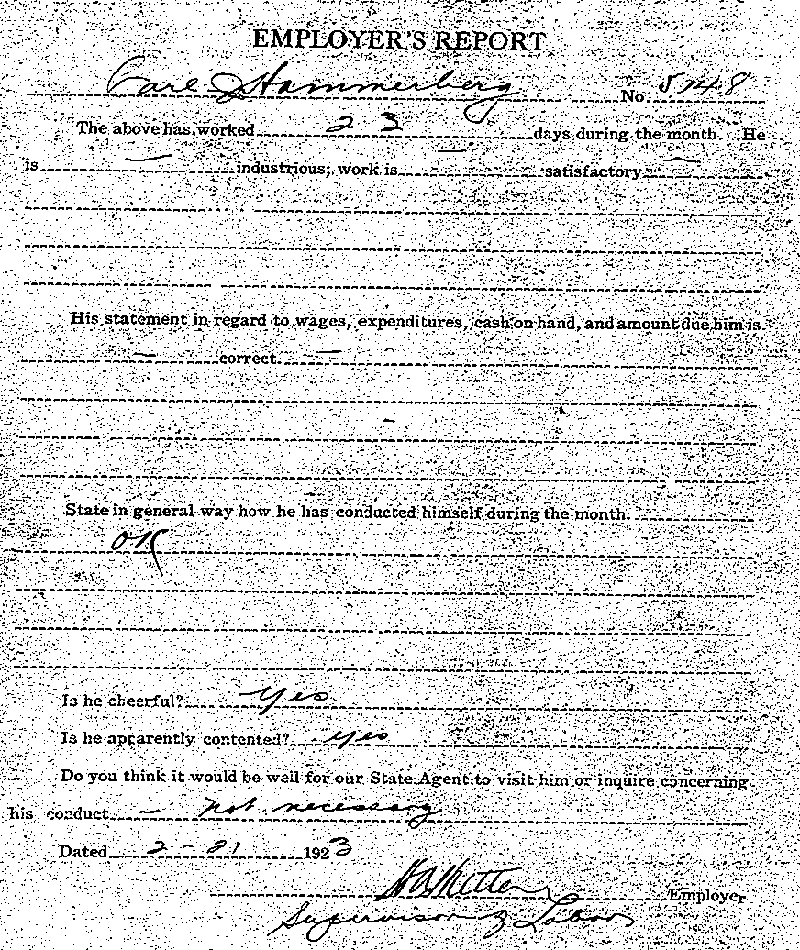 EMPLOYER'S REPORT
Carl J Hammerberg No. 5748
The above has worked 23 days during the month. He
is — industrious; work is — satisfactory —
His statement in regard to wages, expenditures, cash on hand, and amount due him is
— correct —
State in general way how he has conducted himself during the month.
OK
Is he cheerful? yes
Is he apparently contented? yes
Do you think it would be well for our State Agent to visit him or inquire concerning
his conduct — not necessary
Dated 2 - 1923
Employer
Supervisor of Labor